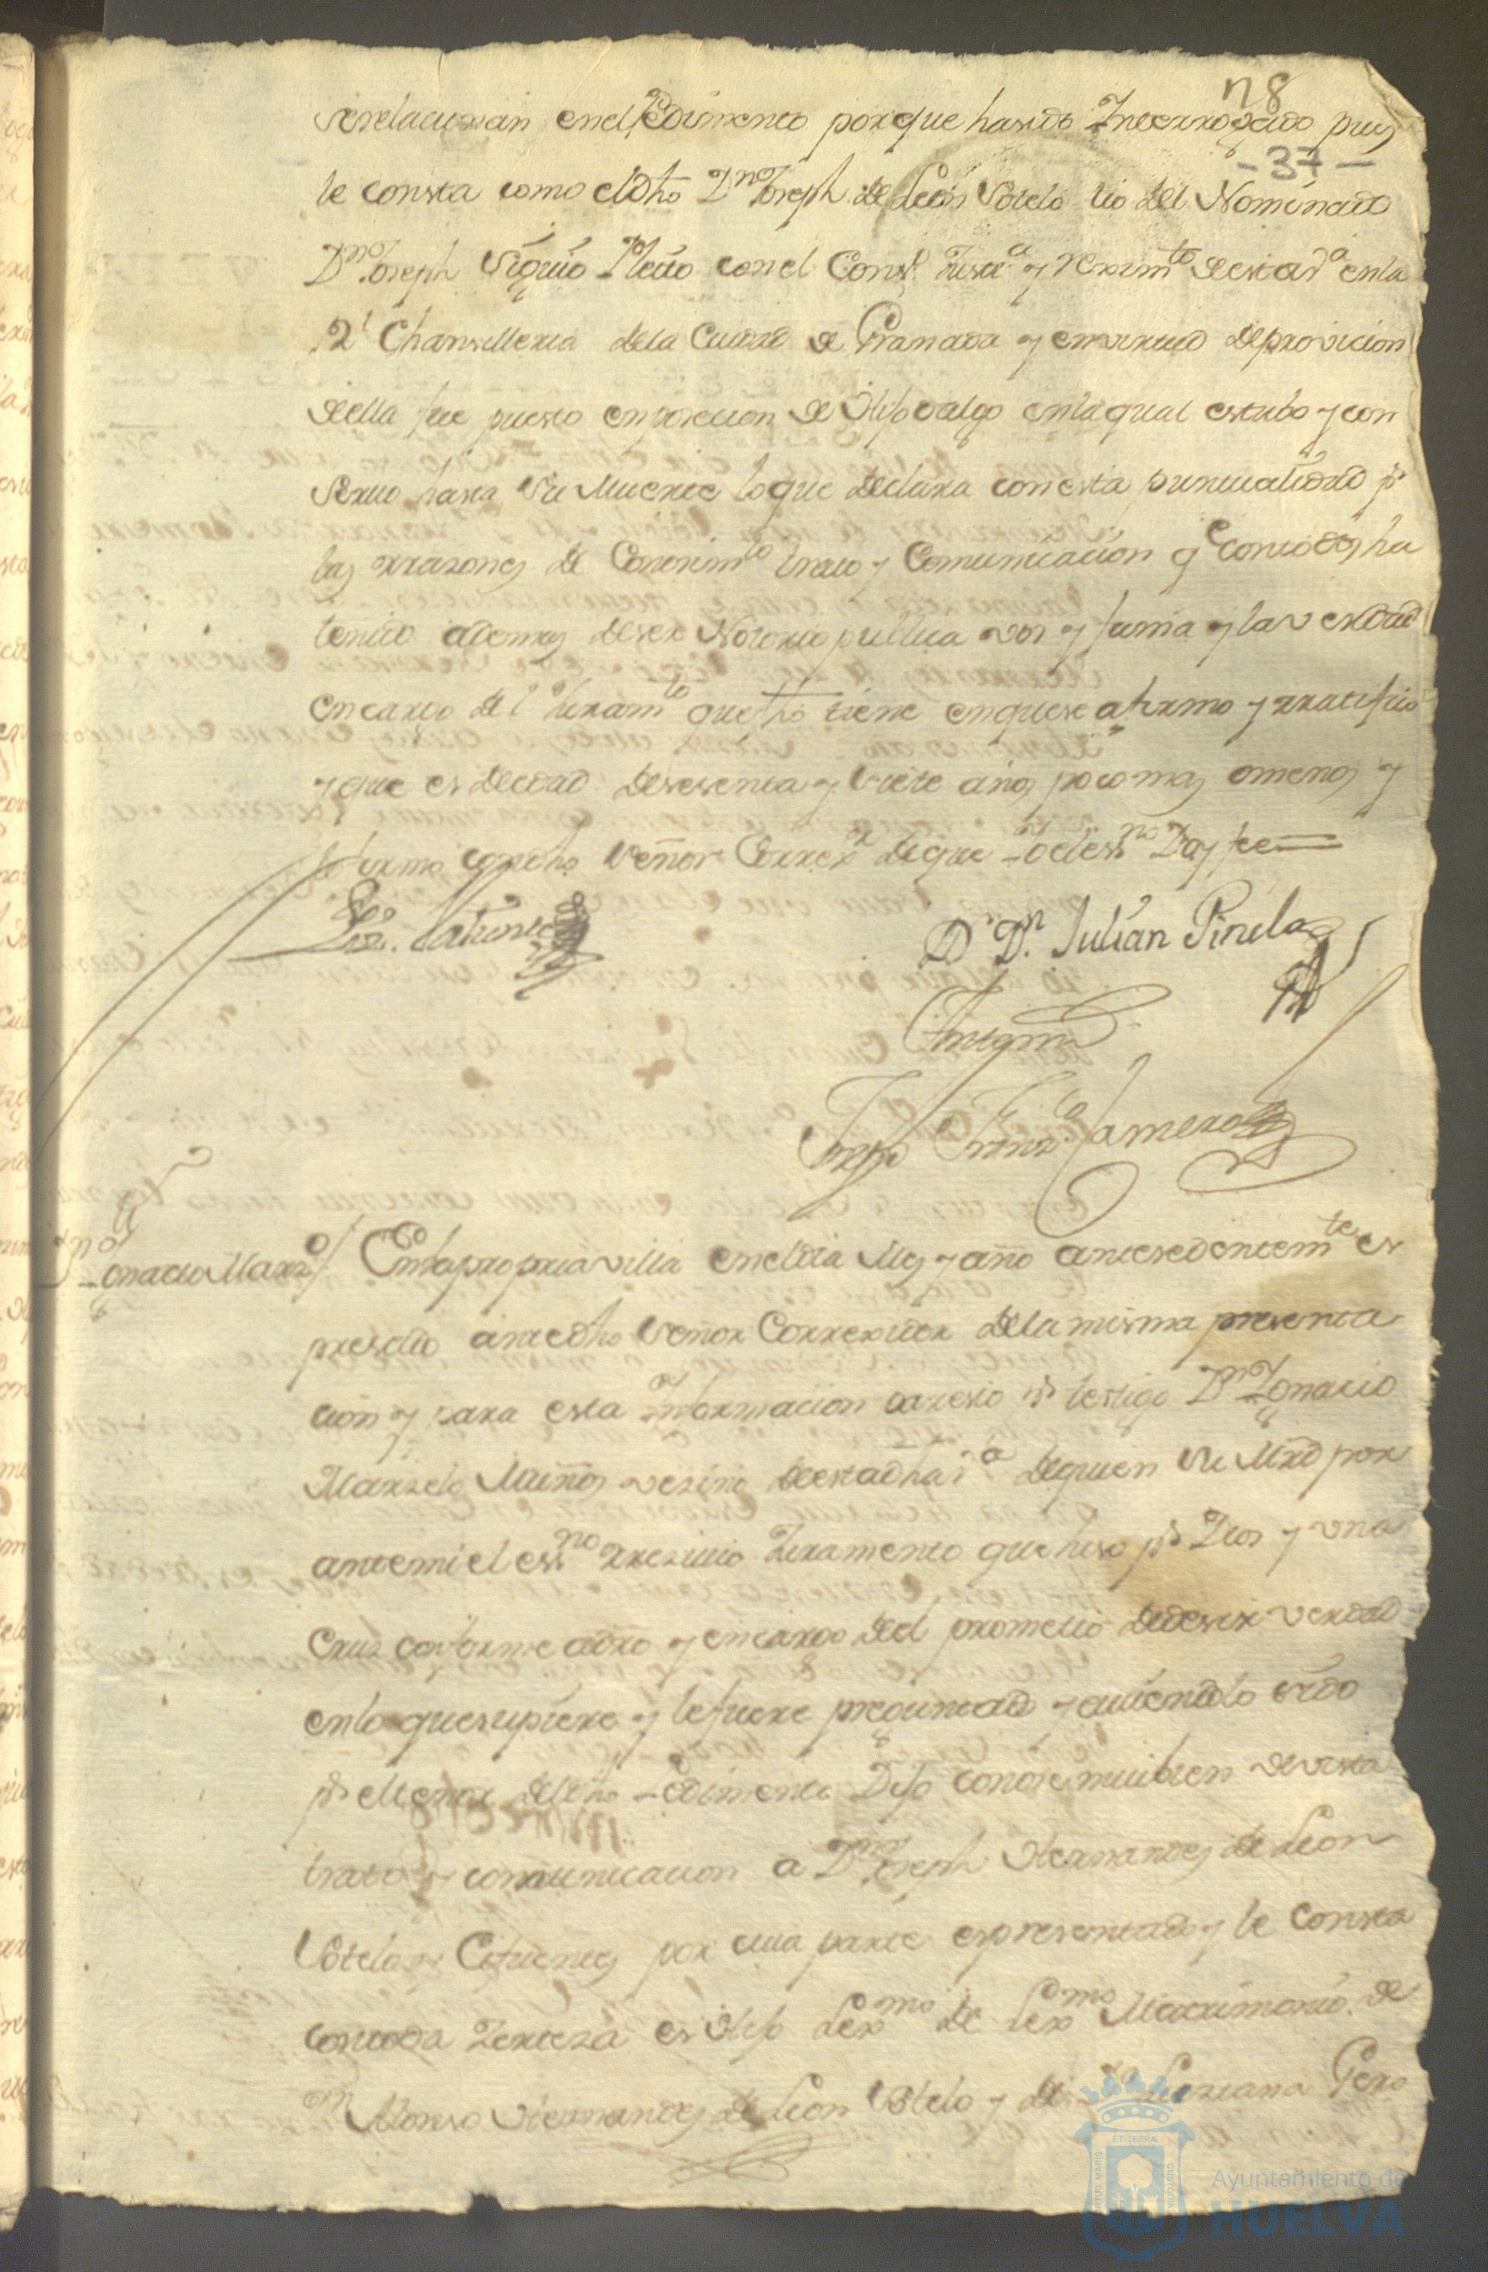 n8
-37-
se relacionan en el Pedimento porque ha sido Interrogado pues
le consta como el dho Dn Joseph de León Sotelo tio del Nominado
Dn Joseph siguió Pleito con el Conso. Justa. y reximto de esta Va en la
Rl Chansilleria de la Ciudad de Granada y en virtud de provicion
de ella fue puesto en posecion de Hijo dalgo en la qual estubo y con
servo hasta su Muerte lo que declara con esta puntualidad pr
las rrazones de Conosimto trato y Comunicación qe con todos ha
tenido ademas de ser Notorio publica vos y fama y la verdad
en cargo del Juramto que fho tiene en que se afirmo y rratifico
y que es de edad de sesenta y siete años poco mas o menos y
lo firmo con dho señor Correxor de que Yo el essno Doy fee=
Dr Dn Julián Pinela
Ante mi
Joseph Franco Camero
tto
Dn Ignacio Marzo
En la propria villa en el dia Mes y año antesedentemte es
presado ante dho señor Correxidor de la misma presenta
ción y para esta Informacion paresio pr testigo Dn Ignacio
Marzelo Muños vezino de esta dha va de quien su Mrd por
ante mi el essno rrezivio Juramento que hiso pr Dios y una
Crus conforme a dro y en cargo del prometio de desir verdad
en lo que supiere y le fuere preguntado y auiendolo sido
pr el tenor del dho Pedimento Dijo conose mui bien de vista
trato y comunicacion a Dn Joseph Hernandes de León
Sotelo y Cifuentes por cuia parte es presentado y le consta
con toda zerteza es Hijo Lexmo de Lexmo Matrimonio de
Dn Alonso Hernandes de León Sotelo y de Da Luziana Gero
Ayuntamiento de
HUELVA